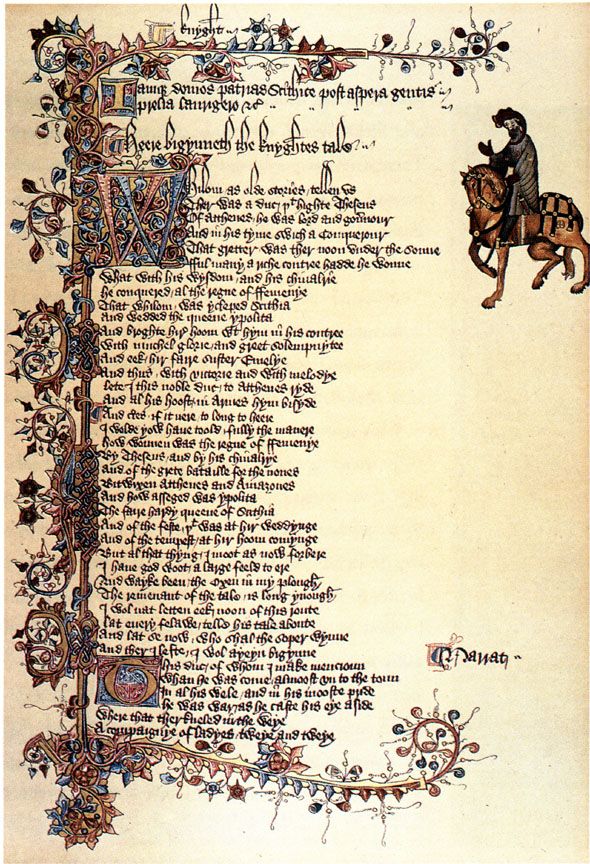 knyght
Iamque domos patrias Scithice post aspera gentis
prelia laurigero &c
Heere bigynneth the knyghtes tale
Whilom as olde stories tellen vs
Ther was a duc þt highte Theseus
Of Atthenes he was lord and gouernour
And in his tyme swich a Conquerour
That gretter was ther noon vnder the sonne
fful many a riche contree hadde he wonne
What with his wysdom and his chiualrie
he conquered al the regne of ffemenye
That whilom was ycleped Scithia
And wedded the queene ypolita
And broghte hir hoom with hym in his contree
With muchel glorie and greet solempnytee
And eek hir faire suster Emelye
And thus with victorie and with melodye
lete I this noble duc to Atthenes ryde
And al his hoost in Armes hym bisyde
And certes if it nere to long to heere
I wolde yow haue toold fully the manere
how wonnen was the regne of ffemenye
By Theseus and by his chiualrye
And of the grete bataille for the nones
Bitwixen Atthenes and Amazones
And how asseged was ypolita
The faire hardy queene of Scithia
And of the feste þt was at hir weddynge
And of the tempest at hir hoom comynge
But al that thyng I moot as now forbere
I haue god woot a large feeld to ere
And wayke been the Oxen in my plough
The remenant of the tale is long ynough
I wol nat letten eek noon of this route
lat euery felawe telle his tale aboute
And lat se now who shal the soper wynne
And ther I lefte I wol ayeyn bigynne
Narrat
This duc of whom I make mencioun
Whan he was come almoost vn to the toun
In al his wele and in his mooste pride
he was war as he caste his eye aside
Where that ther kneled in the weye
A compaignye of ladyes tweye and tweye